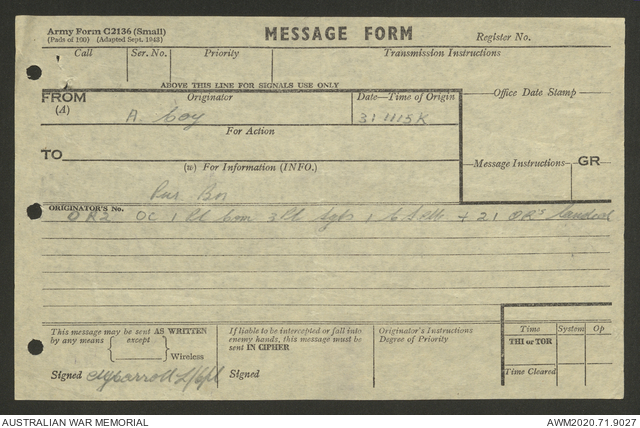 Army Form C2136 (Small)
(Pads of 100) (Adapted Sept. 1943)
MESSAGE FORM
Register No.
Call
Ser. No.
Priority
Transmission Instructions
ABOVE THIS LINE FOR SIGNALS USE ONLY
FROM
(A)
Originator
Date—Time of Origin
Office Date Stamp
A. Coy
31 1115K
For Action
TO
(w) For Information (INFO.)
Message Instructions
GR
ORIGINATOR'S No.
OR2 OC 1 Lt 3 Lt Sgts 1 + 21 ORs landed
This message may be sent AS WRITTEN
by any means except
Wireless
Signed
If liable to be intercepted or fall into
enemy hands, this message must be
sent IN CIPHER
Signed
Originator's Instructions
Degree of Priority
Time
System
Op
THI or TOR
Time Cleared
AUSTRALIAN WAR MEMORIAL
AWM2020.71.9027